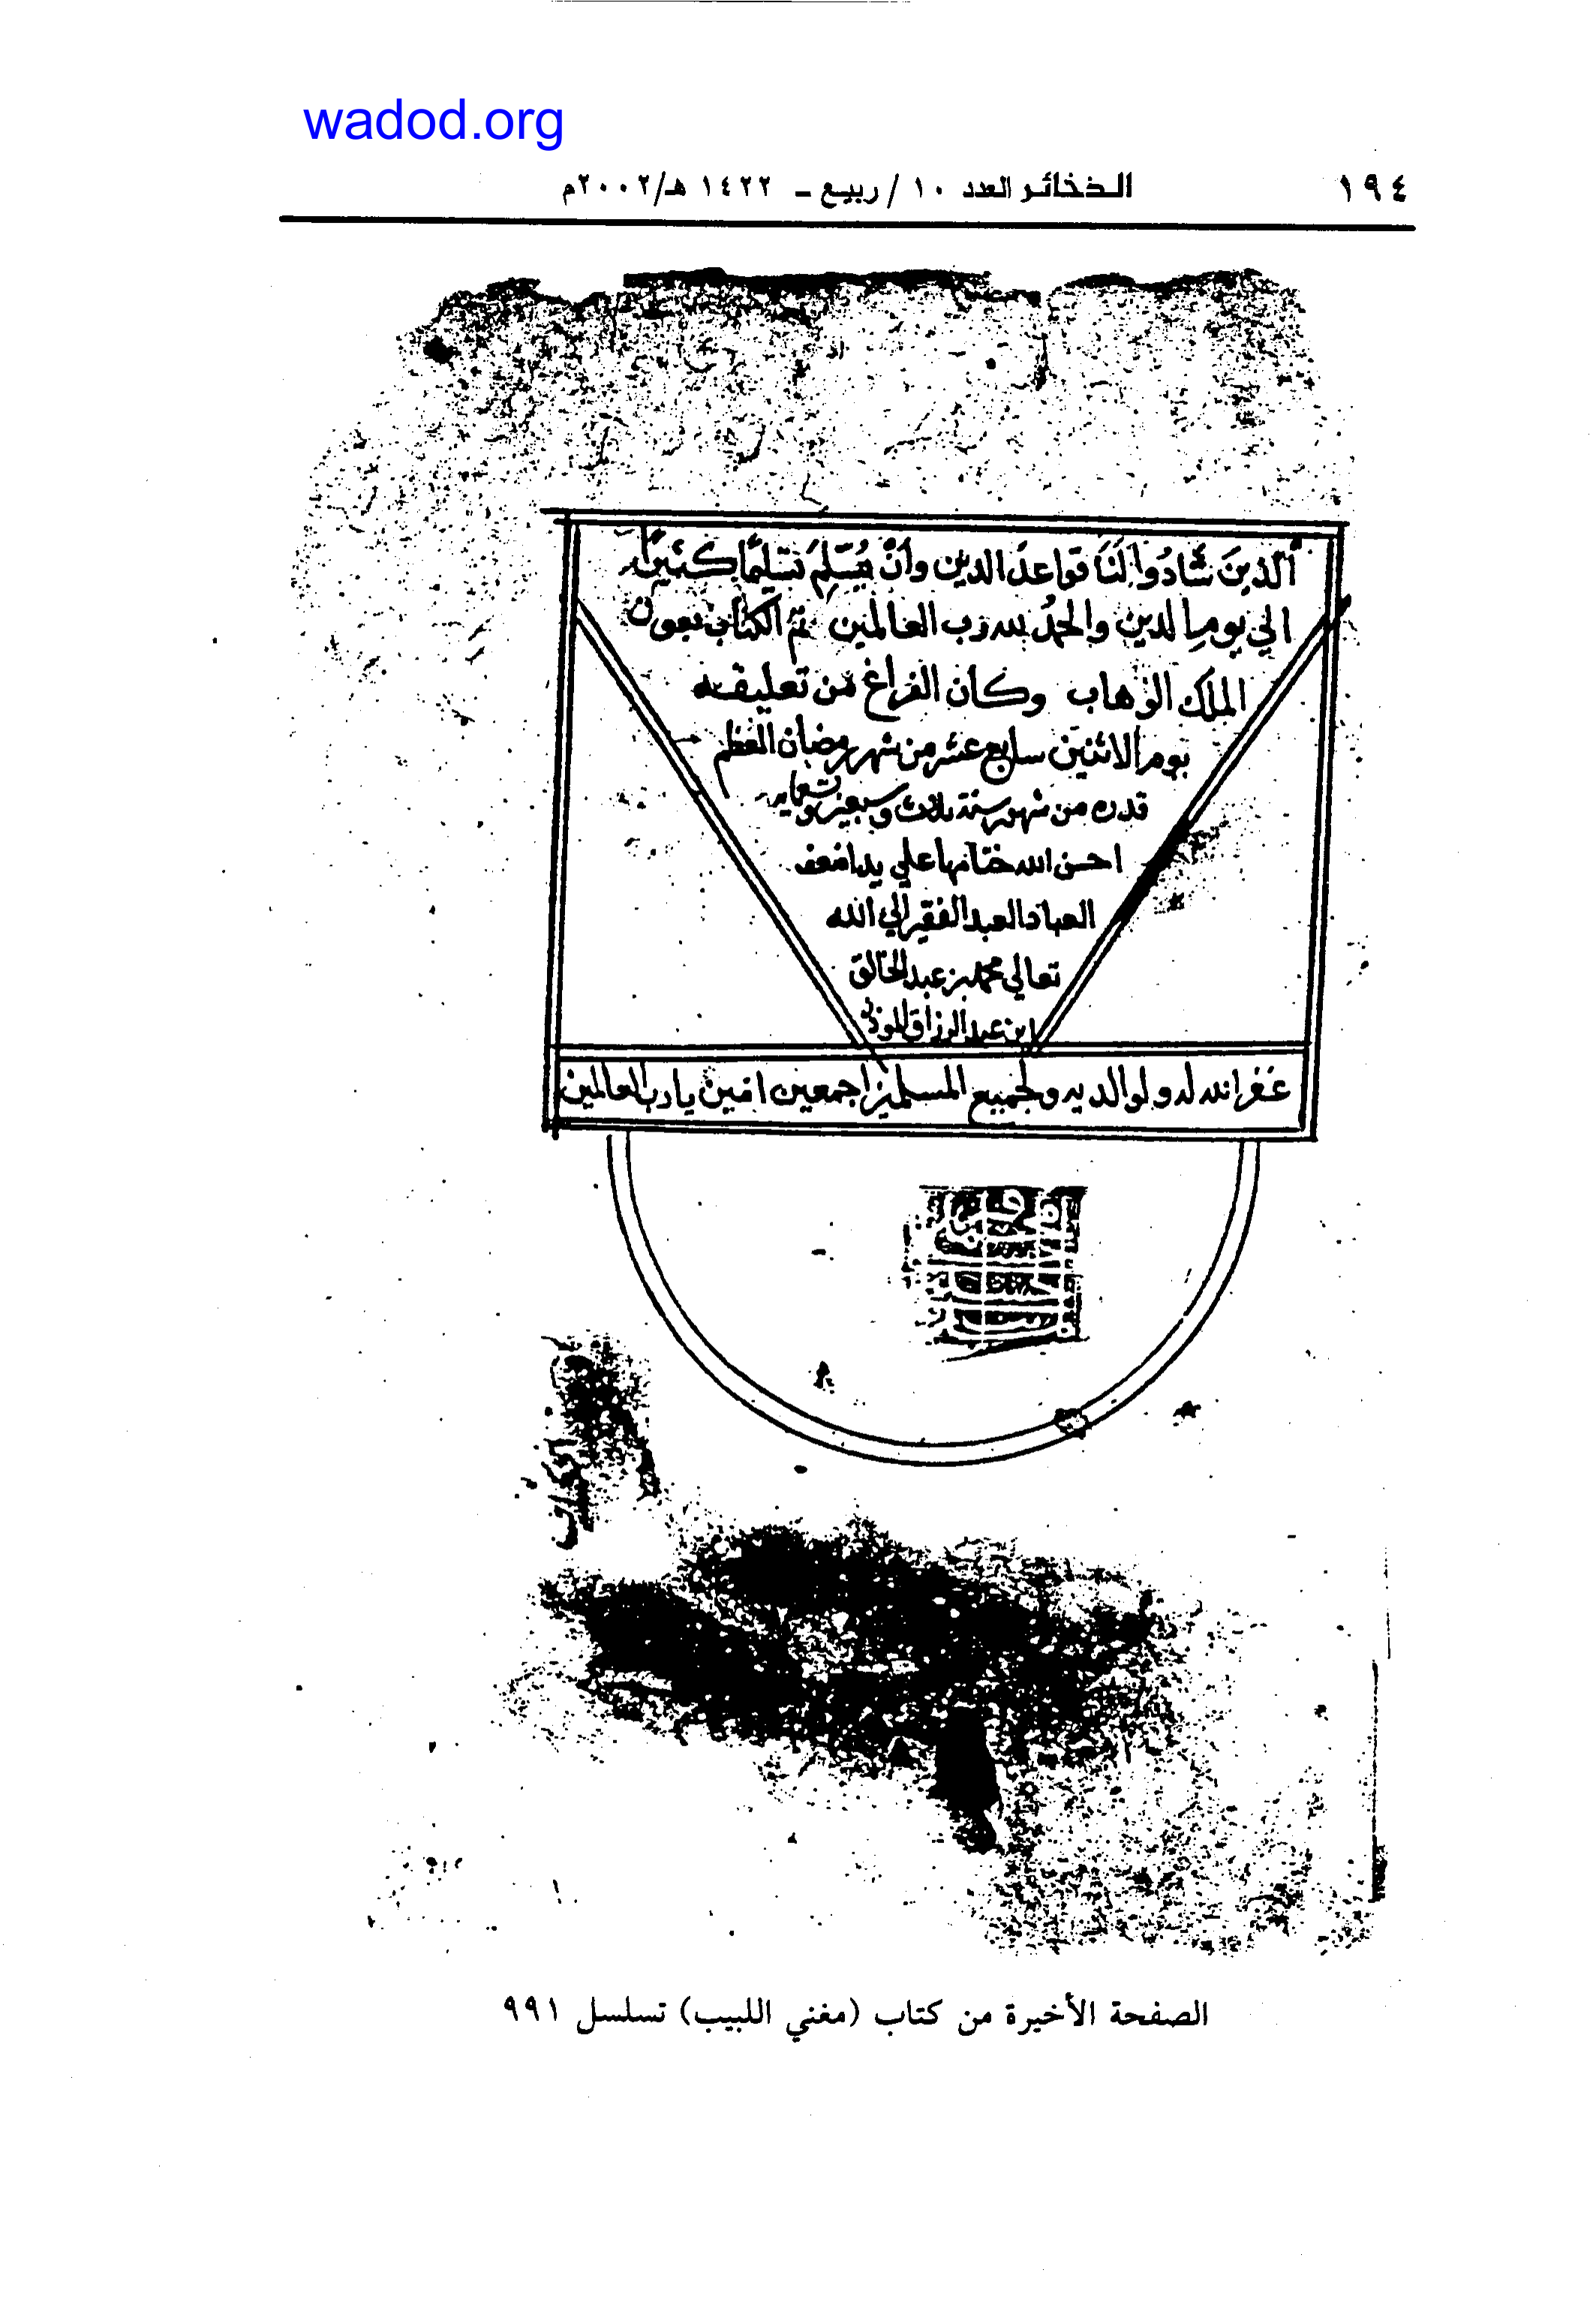 wadod.org
١٩٤
الذخائر العدد ١٠ / ربيع - ١٤٢٢ هـ/٢٠٠٢م
الذينَ شَادُوا لَنَا قواعدَ الدين وأنْ يُسَلِّمَ تسليمًا كثيرًا
الي يوم الدين والحمدُ لله رب العالمين تم الكتاب بعون
الملك الوهاب وكان الفراغ من تعليقه
يوم الاثنين سابع عشر من شهر رمضان المعظم
قدره من شهور سنة ثلاث وسبعين وتسعمايه
احسن الله ختامها علي يد اضعف
العباد العبد الفقير الي الله
تعالي محمد بن عبد الخالق
ابن عبد الرزاق المؤذن
غفر الله له ولوالديه ولجميع المسلمين اجمعين امين يا رب العالمين
الصفحة الأخيرة من كتاب (مغني اللبيب) تسلسل ٩٩١